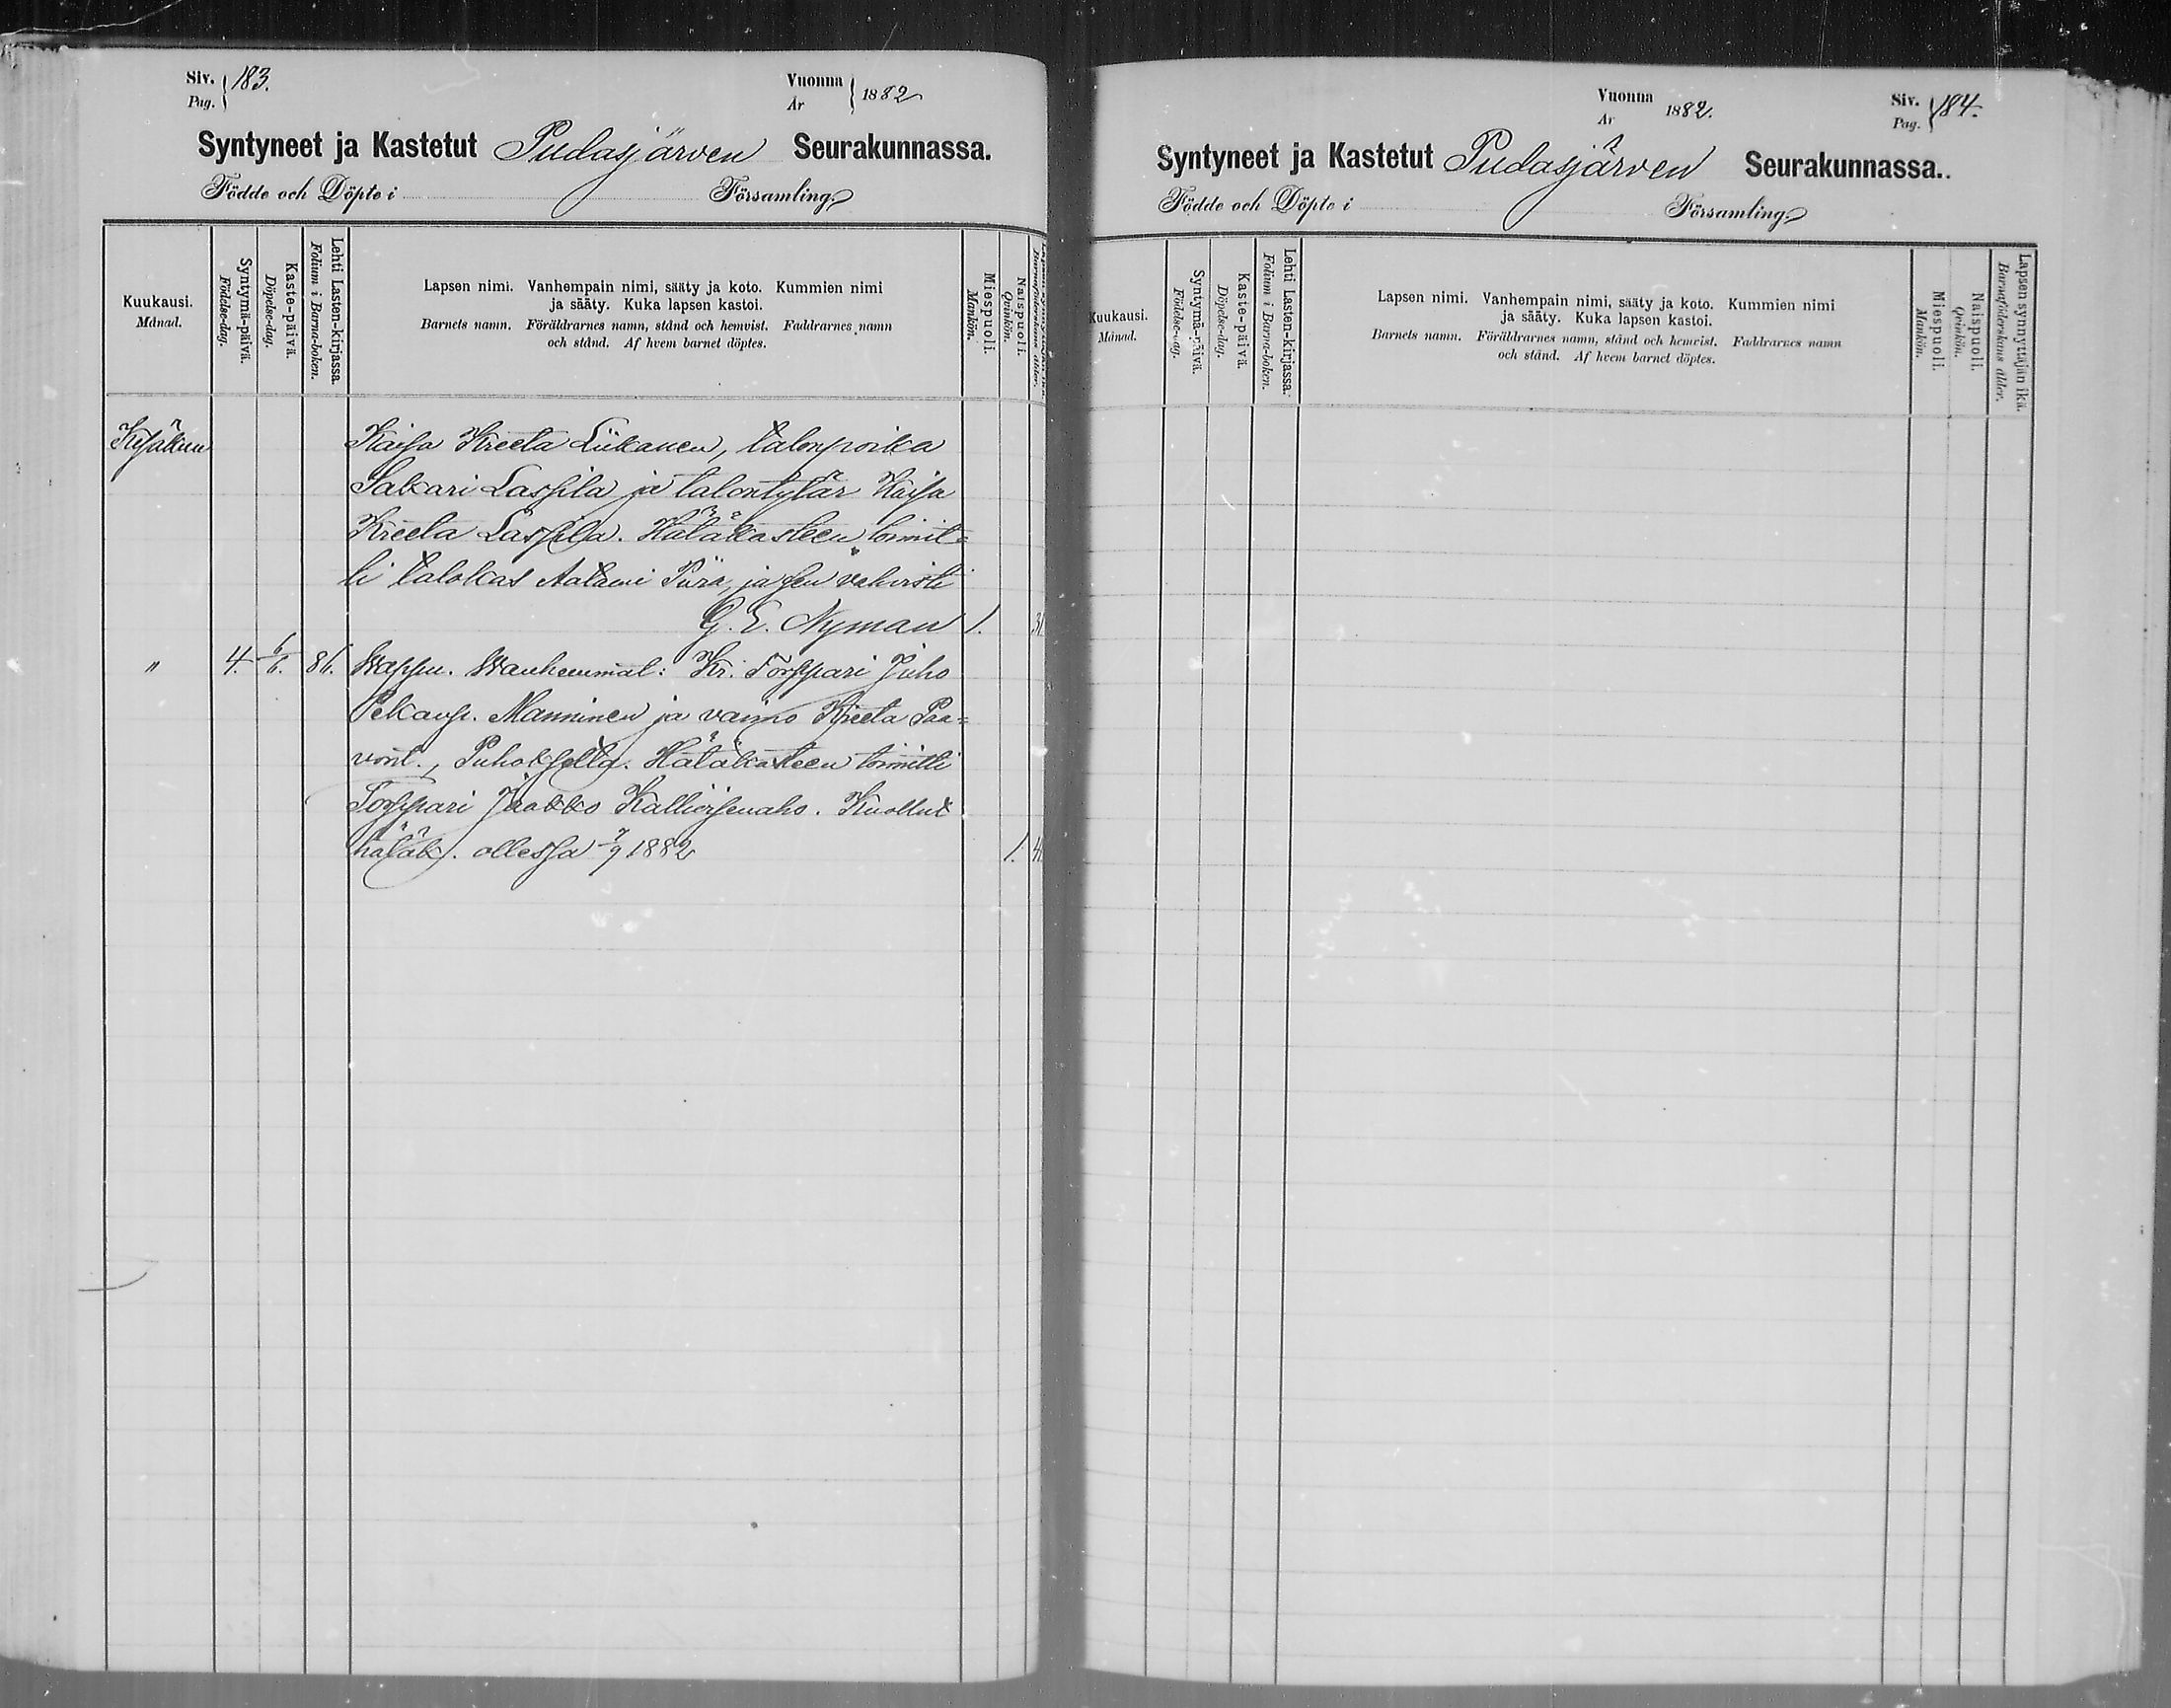 Siv. 183.
Pag.
Vuonna 1882
År
Syntyneet ja Kastetut Pudasjärven Seurakunnassa.
Födde och Döpte i Församling.
Kuukausi.
Månad.
Syntymä-päivä.
Födelse-dag.
Kaste-päivä.
Döpelse-dag.
Lehti Lasten-kirjassa.
Folium i Barna-boken.
Lapsen nimi. Vanhempain nimi, sääty ja koto. Kummien nimi
ja sääty. Kuka lapsen kastoi.
Barnets namn. Föräldrarnes namn, stånd och hemvist. Faddrarnes namn
och stånd. Af hvem barnet döptes.
Miespuoli.
Mankön.
Naispuoli.
Qvinkön.
Kesäkuu Kaisa Kreeta Liikanen, talonpoika
Sakari Lassila ja talontytär Kaisa
Kreeta Lassila. Hätäkasteen toimit=
ti talokas Aatami Piira, ja sen vahvisti
G. E. Nyman 1. 31
" 4. 6/6. 86. Wappu. Wanhemmat: Kr. Torppari Juho
Pekanp. Manninen ja vaimo Kreeta Paa=
vont., Puhoksella. Hätäkasteen toimitti
Torppari Jaakko Kalliorsenaho. Kuollut
hätäk. ollessa 7/9 1882 1. 41
Vuonna 1882.
År
Siv. 184.
Pag.
Syntyneet ja Kastetut Pudasjärven Seurakunnassa.
Födde och Döpte i Församling.
Kuukausi.
Månad.
Syntymä-päivä.
Födelse-dag.
Kaste-päivä.
Döpelse-dag.
Lehti Lasten-kirjassa.
Folium i Barna-boken.
Lapsen nimi. Vanhempain nimi, sääty ja koto. Kummien nimi
ja sääty. Kuka lapsen kastoi.
Barnets namn. Föräldrarnes namn, stånd och hemvist. Faddrarnes namn
och stånd. Af hvem barnet döptes.
Miespuoli.
Mankön.
Naispuoli.
Qvinkön.
Lapsen synnyttäjän ikä.
Barnaföderskans ålder.